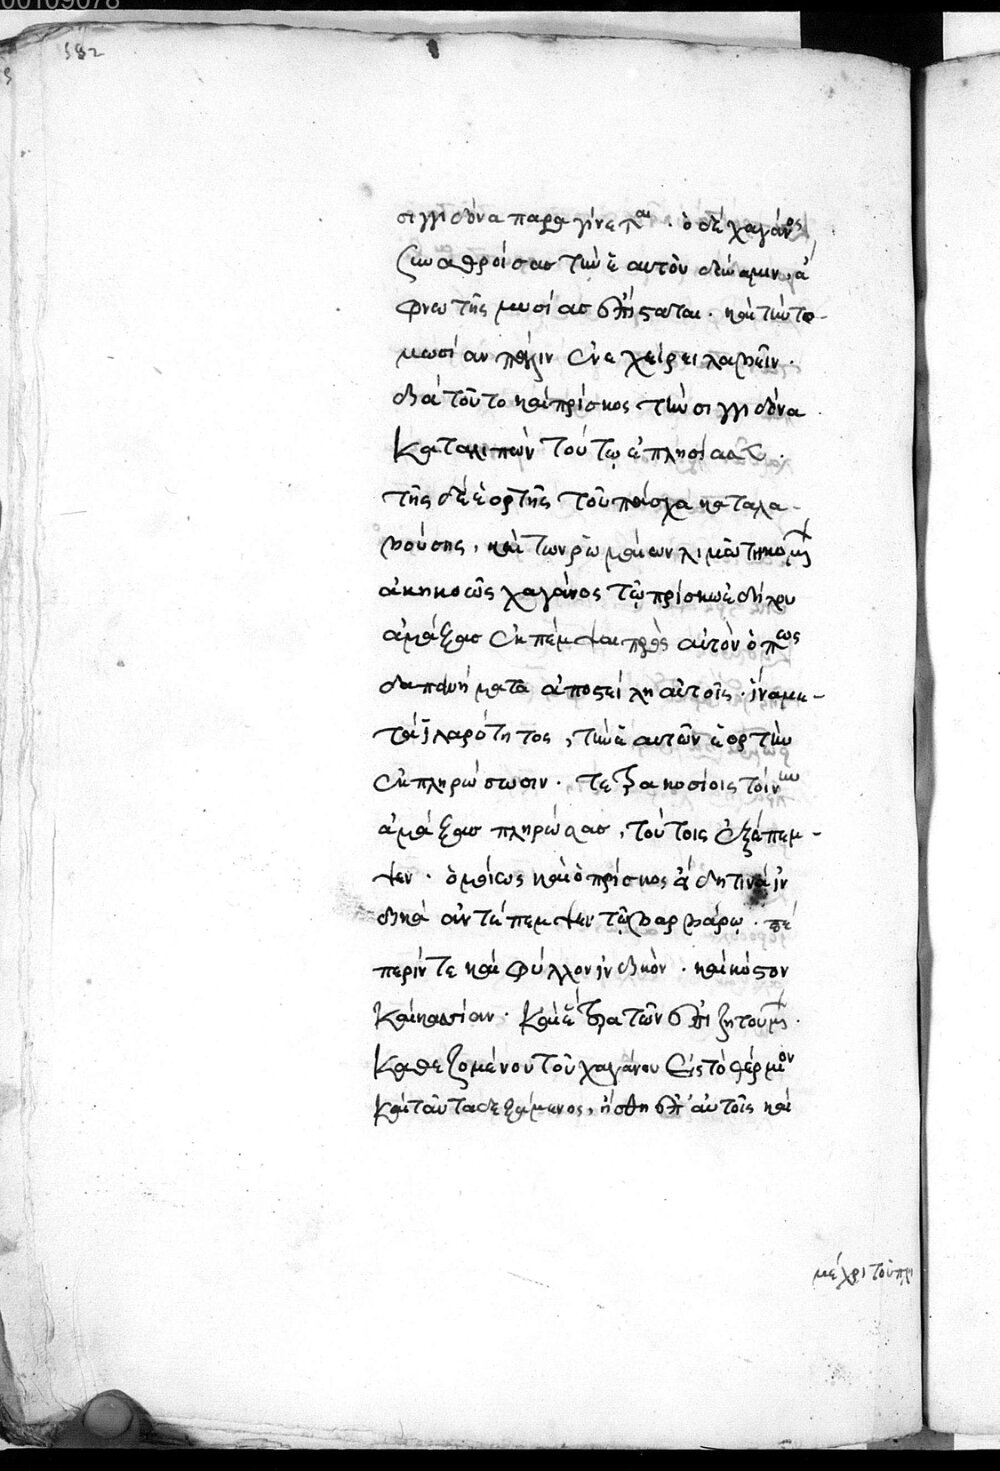 00109078
582
σιγγιδόνα παραγίνεται · ὁ δὲ χαγάνος
ζων ἀθροίσας τὴν ἑαυτὸν δύναμιν, ἀ
φνω τῆς μυσίας ἐπίσταται · καὶ τὴν το-
μωσίαν πόλιν ἐνεχείρει λαβεῖν ·
διὰ τοῦτο καὶ πρίσκος τὴν σιγγιδόνα
καταλιπὼν τούτω ἐπλησίασε ·
τῆς δὲ ἑορτῆς τοῦ πάσχα καταλα-
βούσης, καὶ τῶν ῥωμαίων λιμῶ τηκομένων
ἀκηκοὼς χαγάνος τῷ πρίσκω ἐδήλου
ἁμάξας ἐκπέμψαι πρὸς αὐτὸν ὅπως
δαπανήματα ἀποστείλη αὐτοῖς · ἵνα με-
τὰ ἱλαρότητος, τὴν ἑαυτῶν ἑορτὴν
ἐκπληρώσωσιν · τετρακοσίοις τοίνυν
ἁμάξας πληρώσας, τούτοις ἐξέπεμ-
ψεν · ὁμοίως καὶ ὁ πρίσκος εἴδη τινὰ ἰν
δικὰ ἀντέπεμψεν τῷ βαρβάρῳ · πέ
περίν τε καὶ φύλλον ἰνδικὸν · καὶ κόστον
καὶ κασίαν · καὶ ἕτερα τῶν ἐπιζητουμένων ·
καθεζομένου τοῦ χαγάνου εἰς τὸ σέρμιον
καὶ ταῦτα δεξάμενος, ἥσθη ἐπ' αὐτοῖς καὶ
μέχρι τοῦ πρι